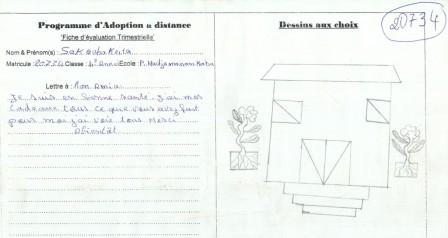 Programme d'Adoption à distance
'Fiche d'évaluation Trimestrielle'
Nom & Prénom(s) Sakouba Keita
Matricule : 20734 Classe : 4° Année Ecole : P. Madjamanan Kaba
Lettre à : Mon Amie
Je suis en bonne santé. j'ai mes
Cadeaux tous ce que vous avez fait
pour moi j'ai voie tous Merci
Abientôt
Dessins aux choix
20734